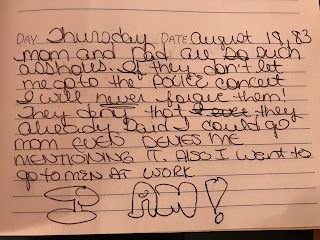 DAY Thursday DATE August 18, 83
mom and Dad are so such
assholes. If they don't let
me go to the POLICE concert
I will never forgive them!
They deny that they
already said I could go
mom even DENIES me
MENTIONING IT. Also I want to
go to MEN AT WORK
I AM!